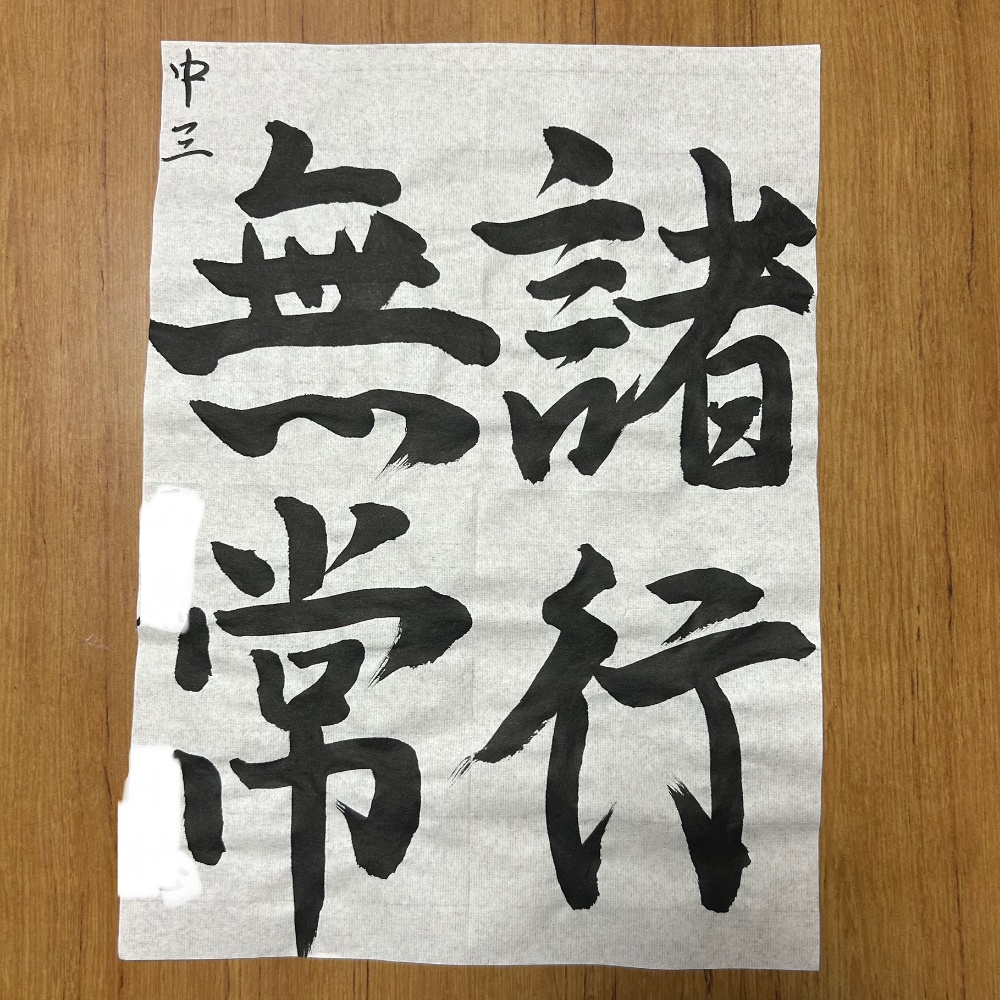 諸行
無常
中三